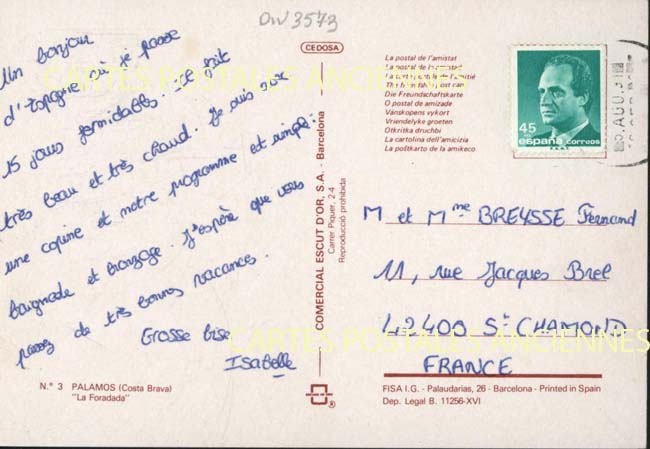 DIV 3573
Un bonjour
d'Espagne où je passe
15 jours formidables. Il fait
très beau et très chaud. Je suis avec
une copine et notre programme est simple:
baignade et bronzage. J'espère que vous
passez de très bonnes vacances.
Grosse bise
Isabelle
N.° 3 PALAMOS (Costa Brava)
"La Foradada"
CEDOSA
COMERCIAL ESCUT D'OR, S.A. - Barcelona
Carrer Piquer, 2-4
Reproducció prohibida
La postal de l'amistat
La postal de la
La carte postale de l'amitié
The friendship post card
Die Freundschaftskarte
O postal de amizade
Vänskapens vykort
Vriendelyke groeten
Otkritka druchbi
La cartolina dell'amicizia
La poŝtkarto de la amikeco
45
PTS
españa correos
AGO
M et Mme BREYSSE Fernand
11, rue Jacques Brel
42400 St CHAMOND
FRANCE
FISA I.G. - Palaudarias, 26 - Barcelona - Printed in Spain
Dep. Legal B. 11256-XVI
CARTES POSTALES ANCIENNES
CARTES POSTALES ANCIENNES